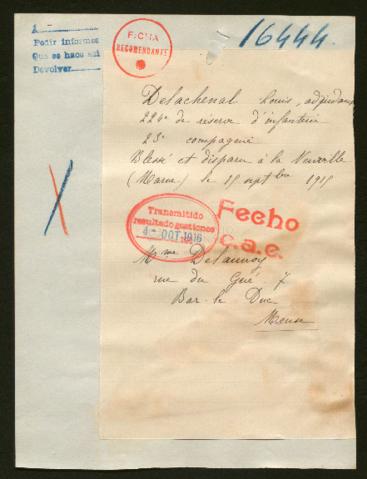 A
Pedir informes
Que se haga así
Devolver
FICHA
RECOMENDANTE
16444.
Delachenal Louis, adjudant
224e de réserve d'infanterie
23e compagnie
Blessé et disparu à la Neuville
(Marne) le 15 septbre 1915
Transmitido
resultado gestiones
4 - OCT. 1916
Fecho
c.a.e.
Mme Delaunoy
rue du Gué 7
Bar le Duc
Meuse